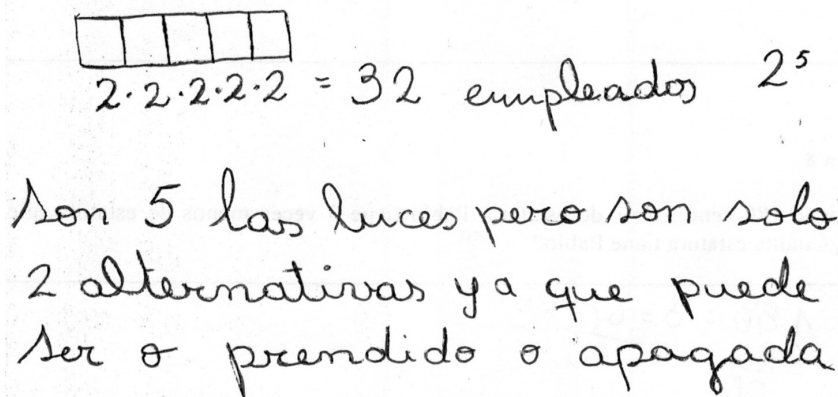 2·2·2·2·2 = 32 empleados 2⁵
son 5 las luces pero son solo
2 alternativas ya que puede
ser o prendido o apagada